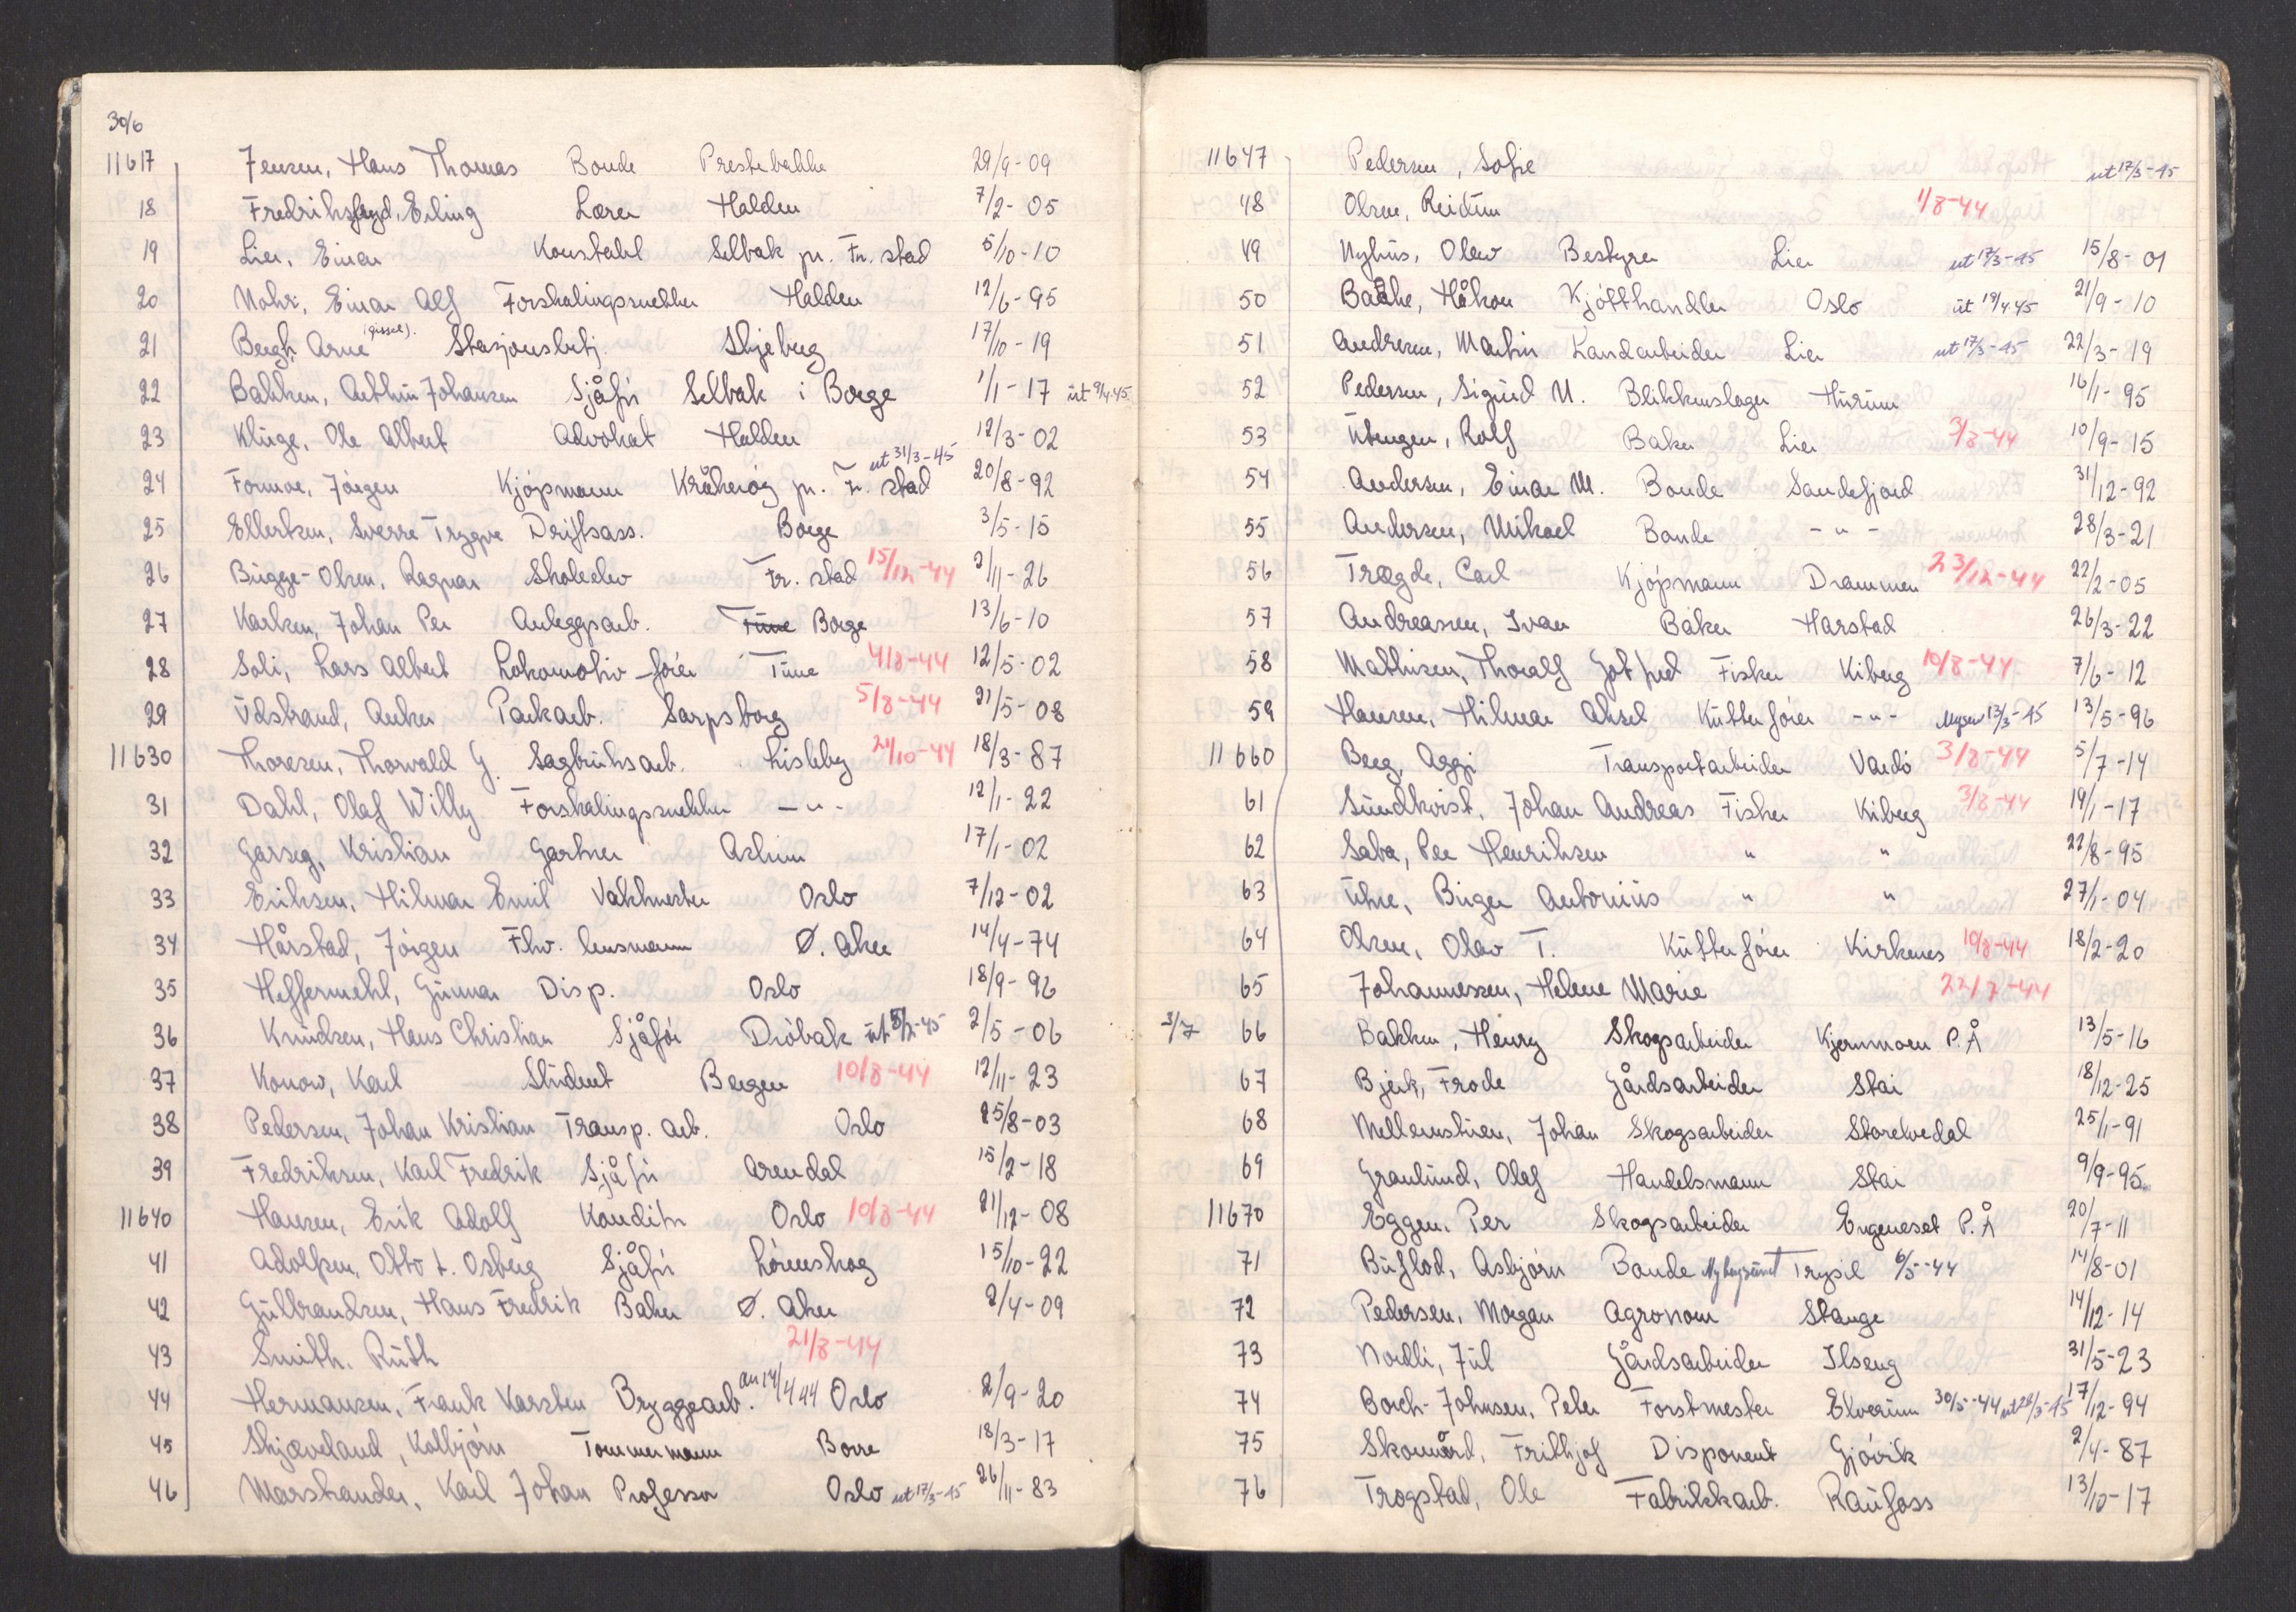 30/6
11617 Jensen, Hans Thomas Bonde Prestebakke 29/9-09
18 Fredrikslyd, Erling Lærer Halden 7/2-05
19 Lier, Einar Konstabel Selbak pr. Fr. stad 5/10-10
20 Mohr, Einar Alf Forskalingssnekker Halden 12/6-95
21 Bergh Arne (gissel). Stasjonsbetj. Skjeberg 17/10-19
22 Bakken, Arthur Johansen Sjåfør Selbak i Borge 1/1-17 ut 9/4-45
23 Kluge, Ole Albert Advokat Halden 12/3-02
24 Formoe, Jørgen Kjøpmann Kråkerøy pr. Fr. stad ut 31/3-45 20/8-92
25 Ellertsen, Sverre Trygve Driftsass. Borge 3/5-15
26 Bugge-Olsen, Ragnar Skoleelev Fr. stad 15/12-44 2/11-26
27 Karlsen, Johan Per Anleggsarb. Tune Borge 13/6-10
28 Soli, Lars Albert Lokomotiv-fører Tune 4/8-44 12/5-02
29 Udstrand, Anker Parkarb. Sarpsborg 5/8-44 21/5-08
11630 Thoresen, Thorvald G. Sagbruksarb. Lisleby 21/10-44 18/3-87
31 Dahl, Olaf Willy Forskalingssnekker -"- 12/1-22
32 Garseg, Kristian Gartner Askim 17/1-02
33 Eriksen, Hilmar Emil Vaktmester Oslo 7/12-02
34 Hårstad, Jørgen Fhv. lensmann Ø. Aker 14/4-74
35 Heffermehl, Gunnar Disp. Oslo 18/9-96
36 Knudsen, Hans Christian Sjåfør Drøbak ut 5/2-45 2/5-06
37 Konow, Karl Student Bergen 10/8-44 12/11-23
38 Pedersen, Johan Kristian Transp. arb. Oslo 25/8-03
39 Fredriksen, Karl Fredrik Sjåfør Arendal 15/2-18
11640 Hansen, Erik Adolf Konditor Oslo 10/8-44 21/12-08
41 Adolfsen, Otto L. Osberg Sjåfør Lørenskog 15/10-22
42 Gulbrandsen, Hans Fredrik Baker Ø. Aker 2/4-09
43 Smith, Ruth 21/8-44
44 Hermansen, Frank Karsten Bryggearb. an 14/4 44 Oslo 2/9-20
45 Skjæveland, Kolbjørn Tømmermann Borre 18/3-17
46 Marstrander, Karl Johan Professor Oslo ut 17/3-45 26/11-83
11647 Pedersen, Sofie ut 17/3-45
48 Olsen, Reidun 1/8-44
49 Nyhus, Olav Bestyrer Lier ut 17/3-45 15/8-01
50 Håkon Kjøtthandler Oslo ut 19/4-45 21/9-10
51 Andresen, Martin Landarbeider Lier ut 17/3-45 22/3-19
52 Pedersen, Sigurd M. Blikkenslager Hurum 16/1-95
53 Utengen, Rolf Baker Lier 3/8-44 10/9-15
54 Andersen, Einar M. Bonde Sandefjord 31/12-92
55 Andersen, Mikael Bonde -"- 28/3-21
56 Trægde, Carl Kjøpmann Drammen 23/12-44 22/2-05
57 Andreassen, Ivar Baker Harstad 26/3-22
58 Mathisen, Thoralf Gotfred Fisker Kiberg 10/8-44 7/6-12
59 Hansen, Hilmar Aksel Kutterfører -"- Mysen 13/3-45 13/5-96
11660 Berg, Aggi Transportarbeider Vardø 3/8-44 5/7-14
61 Sundkvist, Johan Andreas Fisker Kiberg 3/8-44 19/1-17
62 Saba, Per Henriksen " " 22/8-95
63 Uhre, Birger Antonius " " 27/1-04
64 Olsen, Olav T. Kutterfører Kirkenes 10/8-44 18/2-20
65 Johannessen, Helene Marie 22/7-44
3/7 66 Bakken, Henry Skogsarbeider Kjernmoen P.Å 13/5-16
67 Bjerk, Frode Gårdsarbeider Stai 18/12-25
68 Mellemstuen, Johan Skogsarbeider Storelvedal 25/1-91
69 Granlund, Olaf Handelsmann Stai 9/9-95
11670 Eggen, Per Skogsarbeider Engeneset P.Å 20/7-11
71 Buflod, Asbjørn Bonde Nybergsund Trysil 6/5-44 14/8-01
72 Pedersen, Morgan Agronom Stange 14/12-14
73 Nordli, Jul Gårdsarbeider Ilseng 31/5-23
74 Borch-Johnsen, Peter Forstmester Elverum 30/5-44 ut 28/3-45 17/12-94
75 Skomård, Frithjof Disponent Gjøvik 2/4-87
76 Trogstad, Ole Fabrikkarb. Raufoss 13/10-17